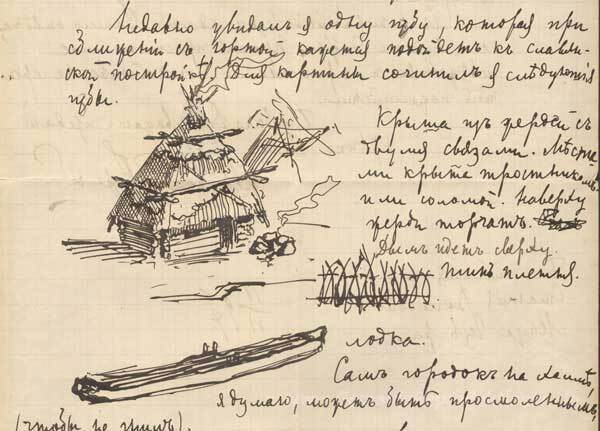 Недавно увидалъ я одну избу, которая при
сближеніи съ юртой кажется подойдетъ къ славян-
ской постройкѣ. Для картины сочинилъ я слѣдующія
избы.
Крыта изъ жердей съ
двумя связами. Мѣста-
ми крыта тростникомъ
или соломой. Наверху
жерди торчатъ.
Дымъ идетъ сверху.
Типъ плетня.
лодка.
Самъ городокъ на холмѣ,
я думаю, можетъ быть просмоленнымъ,
(чтобы не гнилъ).